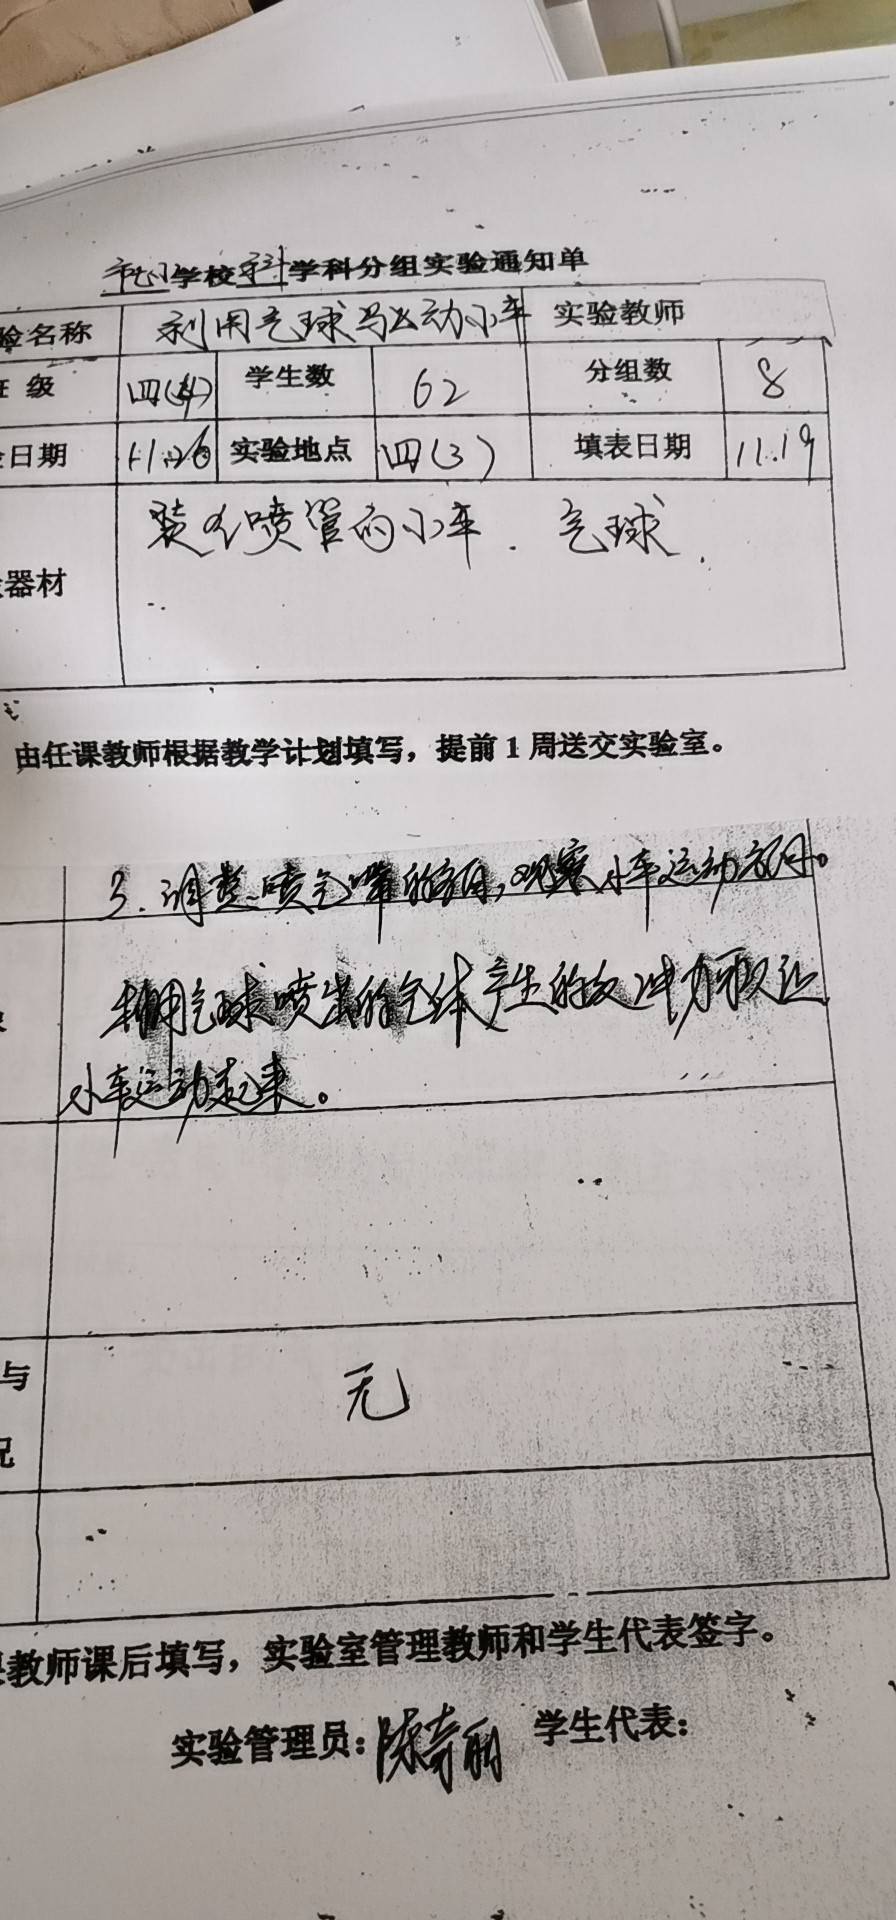 学校 科学学科分组实验通知单
验名称 利用气球驱动小车 实验教师
班级 四(4) 学生数 62 分组数 8
日期 11.26 实验地点 四(3) 填表日期 11.19
器材 装有喷管的小车. 气球.
由任课教师根据教学计划填写，提前1周送交实验室。
3.调整喷气嘴的方向,观察小车运动方向。
利用气球喷出的气体产生的反冲力可以让
小车运动起来。
与 无
况
教师课后填写，实验室管理教师和学生代表签字。
实验管理员: 陈奇丽 学生代表: